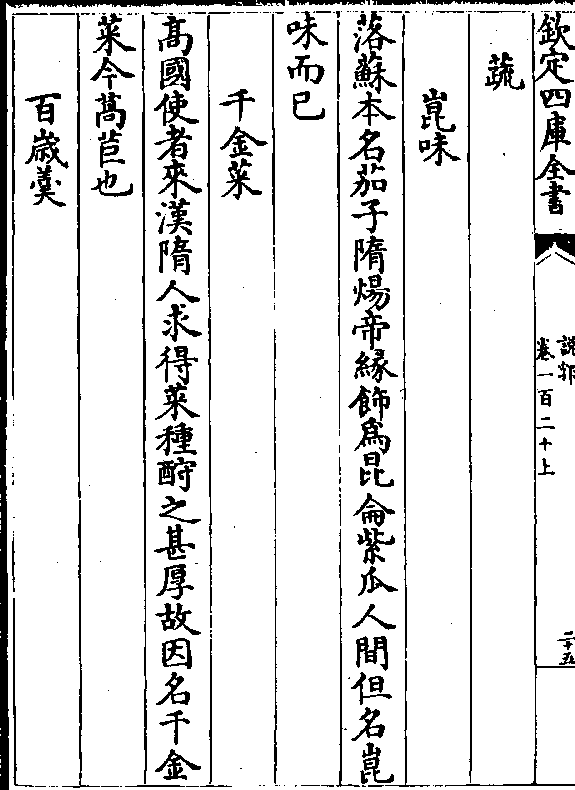 欽定四庫全書
說郛
卷一百二十上
二十五
蔬
崑味
落蘇本名茄子隋煬帝縁飾為昆侖紫瓜人間但名崑
味而已
千金菜
髙國使者來漢隋人求得菜種酧之甚厚故因名千金
菜今萵苣也
百歳羮